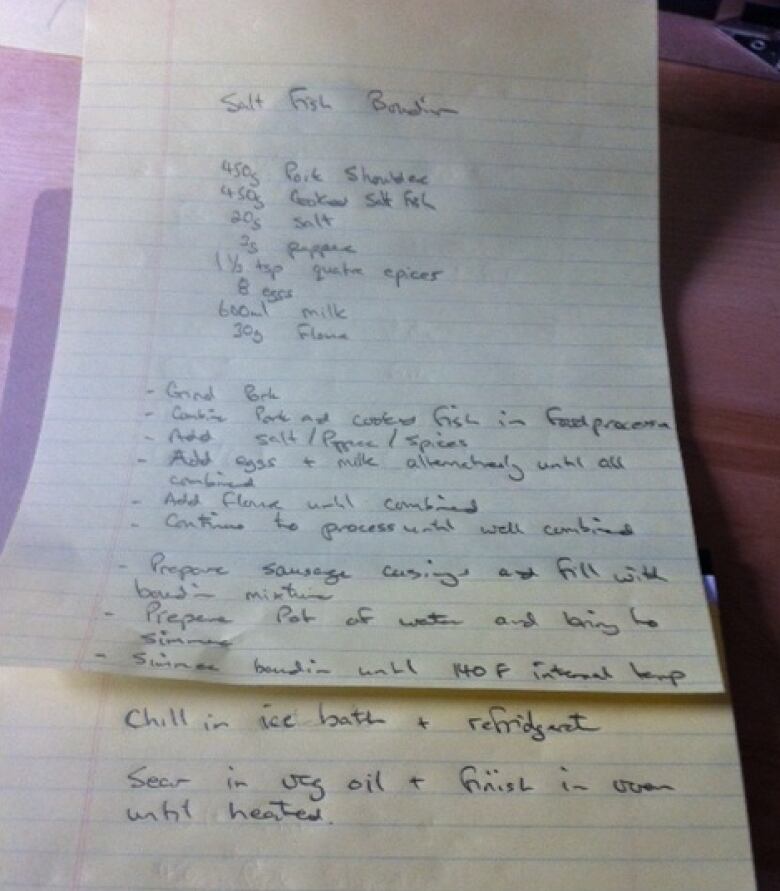 Salt Fish Boudin
450g Pork Shoulder
450g Cooked Salt Fish
20g Salt
3g pepper
1 1/2 tsp quatre epices
8 eggs
600ml milk
30g Flour
- Grind Pork
- Combine Pork and cooked fish in food processor
- Add salt / Pepper / Spices
- Add eggs + milk alternatively until all
combined
- Add Flour until combined
- Continue to process until well combined
- Prepare sausage casings and fill with
boudin mixture
- Prepare Pot of water and bring to
simmer
- Simmer boudin until 140 F internal temp
Chill in ice bath + refridgerat
Sear in veg oil + finish in oven
until heated.